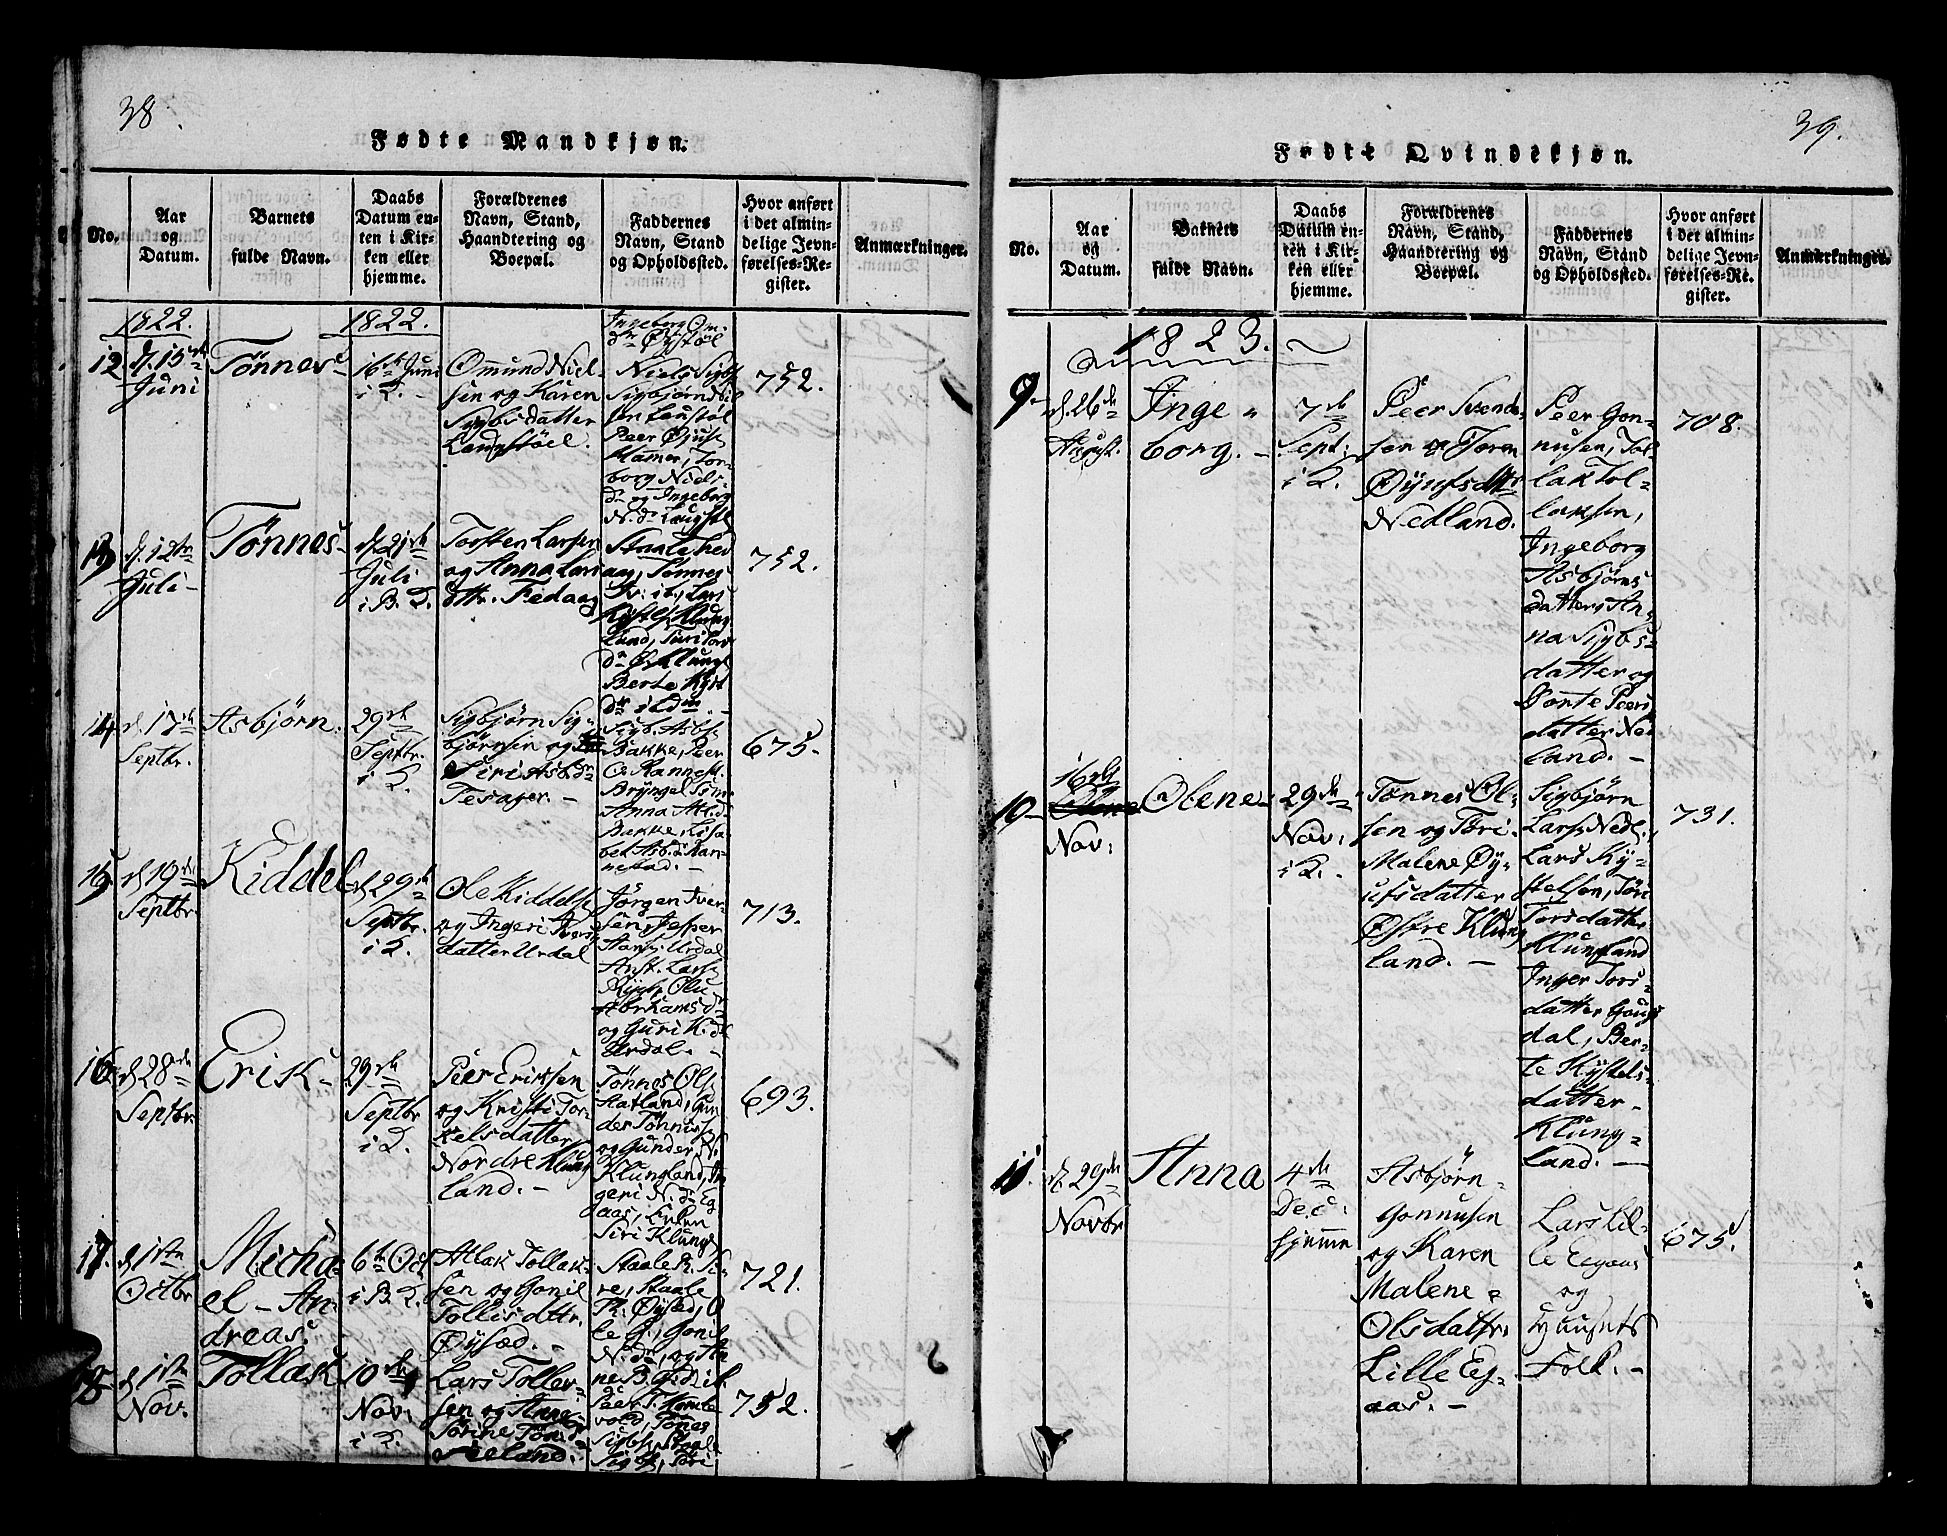 38.
Fødte Mandkjøn.
No.
Aar
og
Datum.
Barnets
fulde Navn.
Daabs
Datum en-
ten i Kir-
ken eller
hjemme.
Forældrenes
Navn, Stand,
Haandtering og
Boepæl.
Faddernes
Navn, Stand
og Opholdssted.
Hvor anført
i det almin-
delige Jevn-
førelses-Re-
gister.
Anmærkninger.
1822.
12
d. 15de
Juni
Tønnes
1822.
16de Juni
i K.
Omund Niel-
sen og Karen
Sigbsdatter
Langstøel.
Ingeborg Om.
dr Øystøl
Niels Sigbs
Peer Øjuse
Hamer, Tor-
borg Niels
dr og Ingeborg
752.
13
d. 12te
Juli
Tønnes
d. 21de
Juli
i B. K.
Torsten Larsen
og Anna Lars
dttr. Fedaag
752.
14
d. 17de
Septbr.
Asbjørn.
29de
Septbr.
i K.
Sigbjørn Sig-
bjørnsen og
Siri Asb.dr
Tesager.
Sigb. Asbs.
Bakke, Peer
O. Rannest.
Bryngel Sim.
Anna Atl.d.
Bakke, Lisa-
bet Asb.d. Ran-
nestad.
675.
15
d. 19de
Septbr.
Kiddel
d. 29de
Septbr.
i K.
Ole Kiddels.
og Ingeri Ivers
datter Urdal
Jørgen Iver-
sen, Jesper
Hans. Urdal
Anst. Lars.
Abrahamsdr
og Guri K.d.
Urdal.
713.
16
d. 28de
Septbr.
Erik
29de
Septbr
i K.
Peer Eriksen
og Kristi Tor-
kelsdatter
Nordre Klung
land.
Tønnes Ols.
Hatland, Gun
der Tønness.
og Gunder N.
Klungland, In
geri N.dr Eg
aas, Enken
Siri Klungl.
693.
17.
d. 1ste
Octbr
Micha-
el An-
dreas.
6te Oct
i B. K.
Atlak Tollak-
sen og Gonil
Tollisdttr.
Øysæd.
721.
18
d. 1ste
Nov.
Tollak
10de
Nov:
i K.
Lars Toller-
sen og Anne
Serine Tøn.
Seeland.
752.
39.
Fødte Qvindekjøn.
No.
Aar
og
Datum.
Barnets
fulde Navn.
Daabs
Datum en-
ten i Kir-
ken eller
hjemme.
Forældrenes
Navn, Stand,
Haandtering og
Boepæl.
Faddernes
Navn, Stand
og Opholdssted.
Hvor anført
i det almin-
delige Jevn-
førelses-Re-
gister.
Anmærkninger.
1823.
9.
d. 26de
August.
Inge-
borg.
7de
Sept:
i K.
Peer Svend-
sen og Joren
Øyufsdttr
Nedland.
Peer Gon-
nusen, Tol-
lak Tol-
laksen,
Ingeborg
Asbjørns
datter, An-
na Sigbs-
datter og
Dorte Peers
datter Ned
land.
708.
10
16de
Nov:
Olene
29de
Nov:
i K.
Tønnes Ol-
sen og Tøri
Malene Øy-
ufsdatter
Østre Klung
land.
Sigbjørn
Lars. Nedl.,
Lars Ky-
stelsen, Tøri
Torsdatter
Klungland
Inger Tors-
datter Gaus
dal, Ber-
te Kystels-
datter
Klung-
land.
731.
11.
d. 29de
Novbr
Anna
4de
Dec:
hjemme
Asbjørn
Gonnusen
og Karen
Malene
Olsdatter
Lille Eg-
aas.
Lars Lil-
le Egaas
og
Husets
Folk.
675.